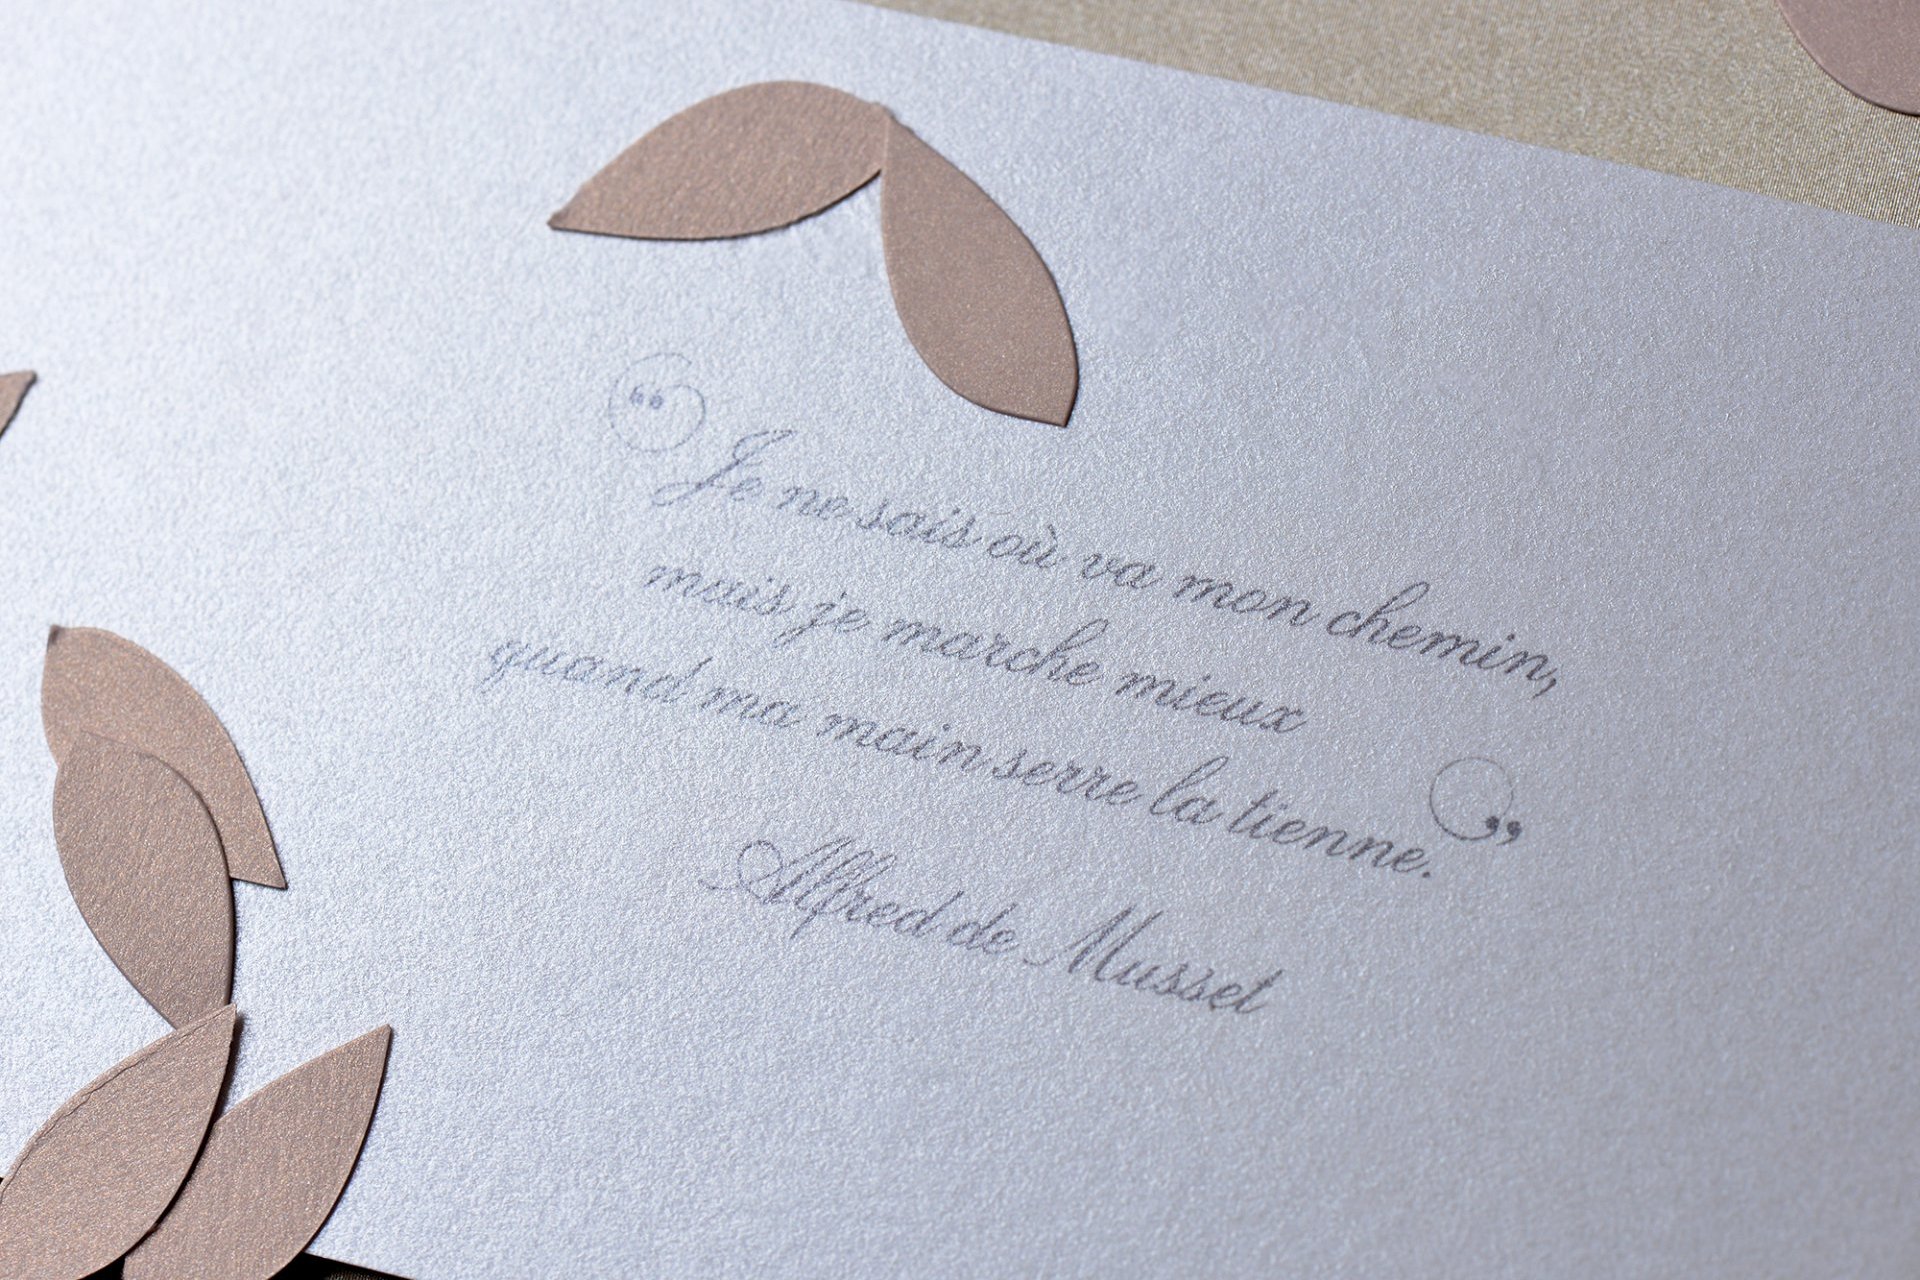 “Je ne sais où va mon chemin,
mais je marche mieux
quand ma main serre la tienne.”
Alfred de Musset